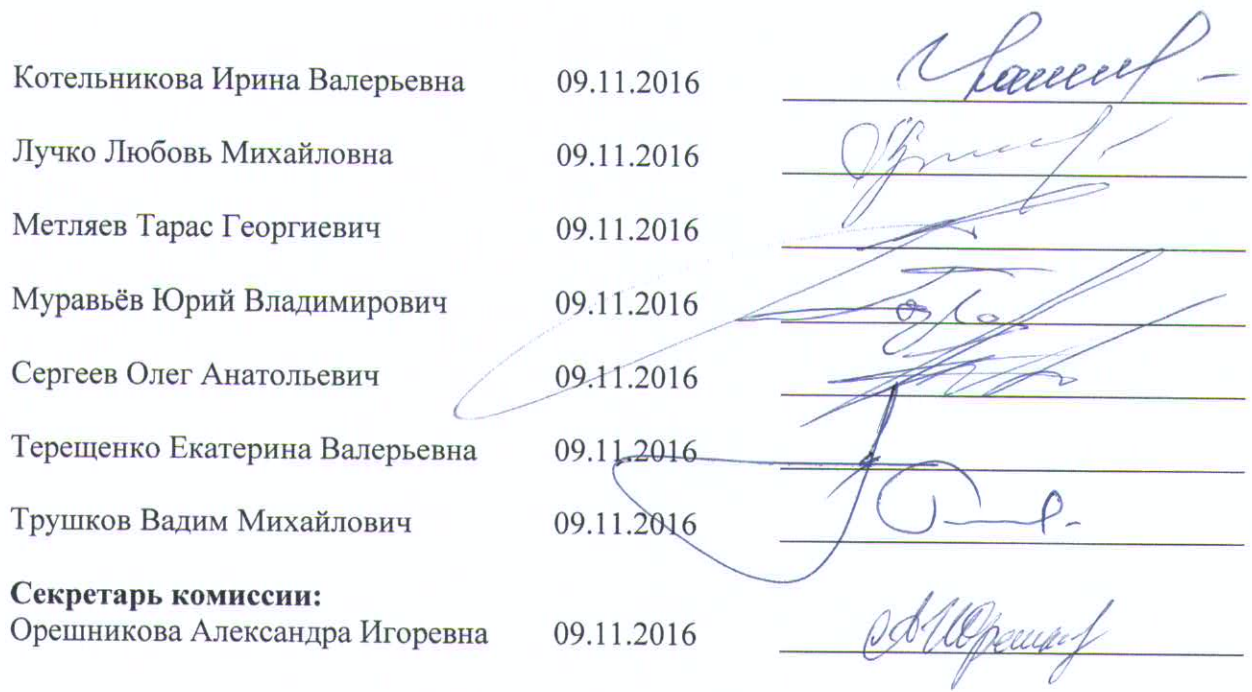 Котельникова Ирина Валерьевна 09.11.2016
Лучко Любовь Михайловна 09.11.2016
Метляев Тарас Георгиевич 09.11.2016
Муравьёв Юрий Владимирович 09.11.2016
Сергеев Олег Анатольевич 09.11.2016
Терещенко Екатерина Валерьевна 09.11.2016
Трушков Вадим Михайлович 09.11.2016
Секретарь комиссии:
Орешникова Александра Игоревна 09.11.2016